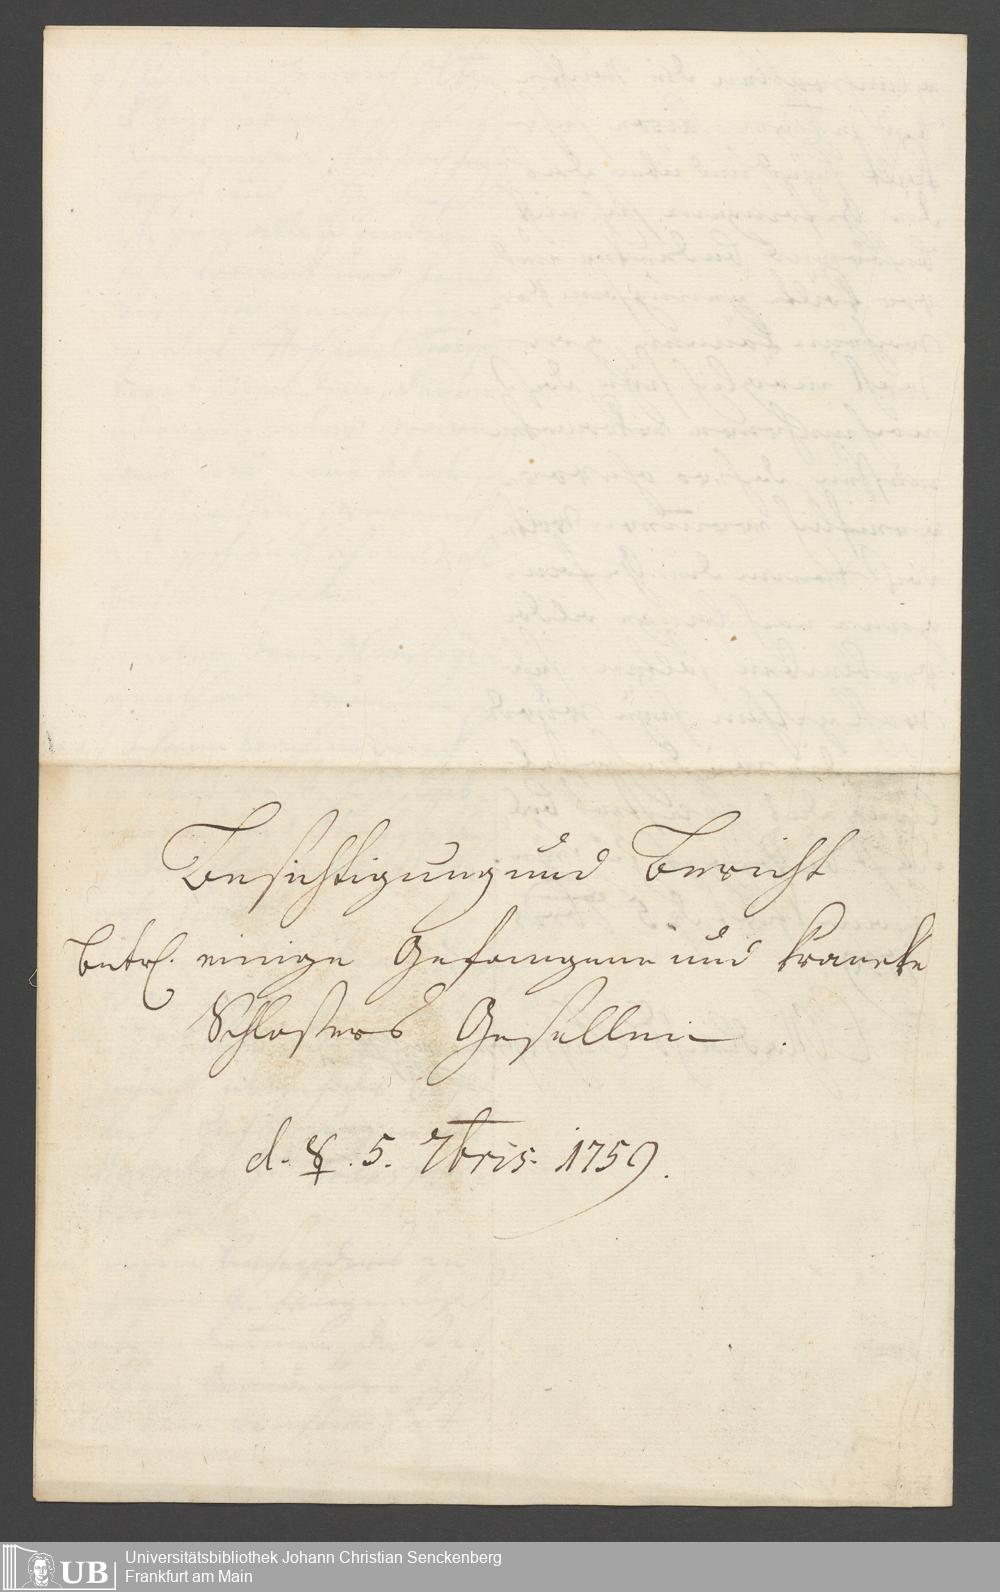 Besichtigung und Bericht
betrf. einige Gefangene und krancke
Schlossers Gesellen.
d. ☿. 5. 7bris. 1759.
UB
Universitätsbibliothek Johann Christian Senckenberg
Frankfurt am Main